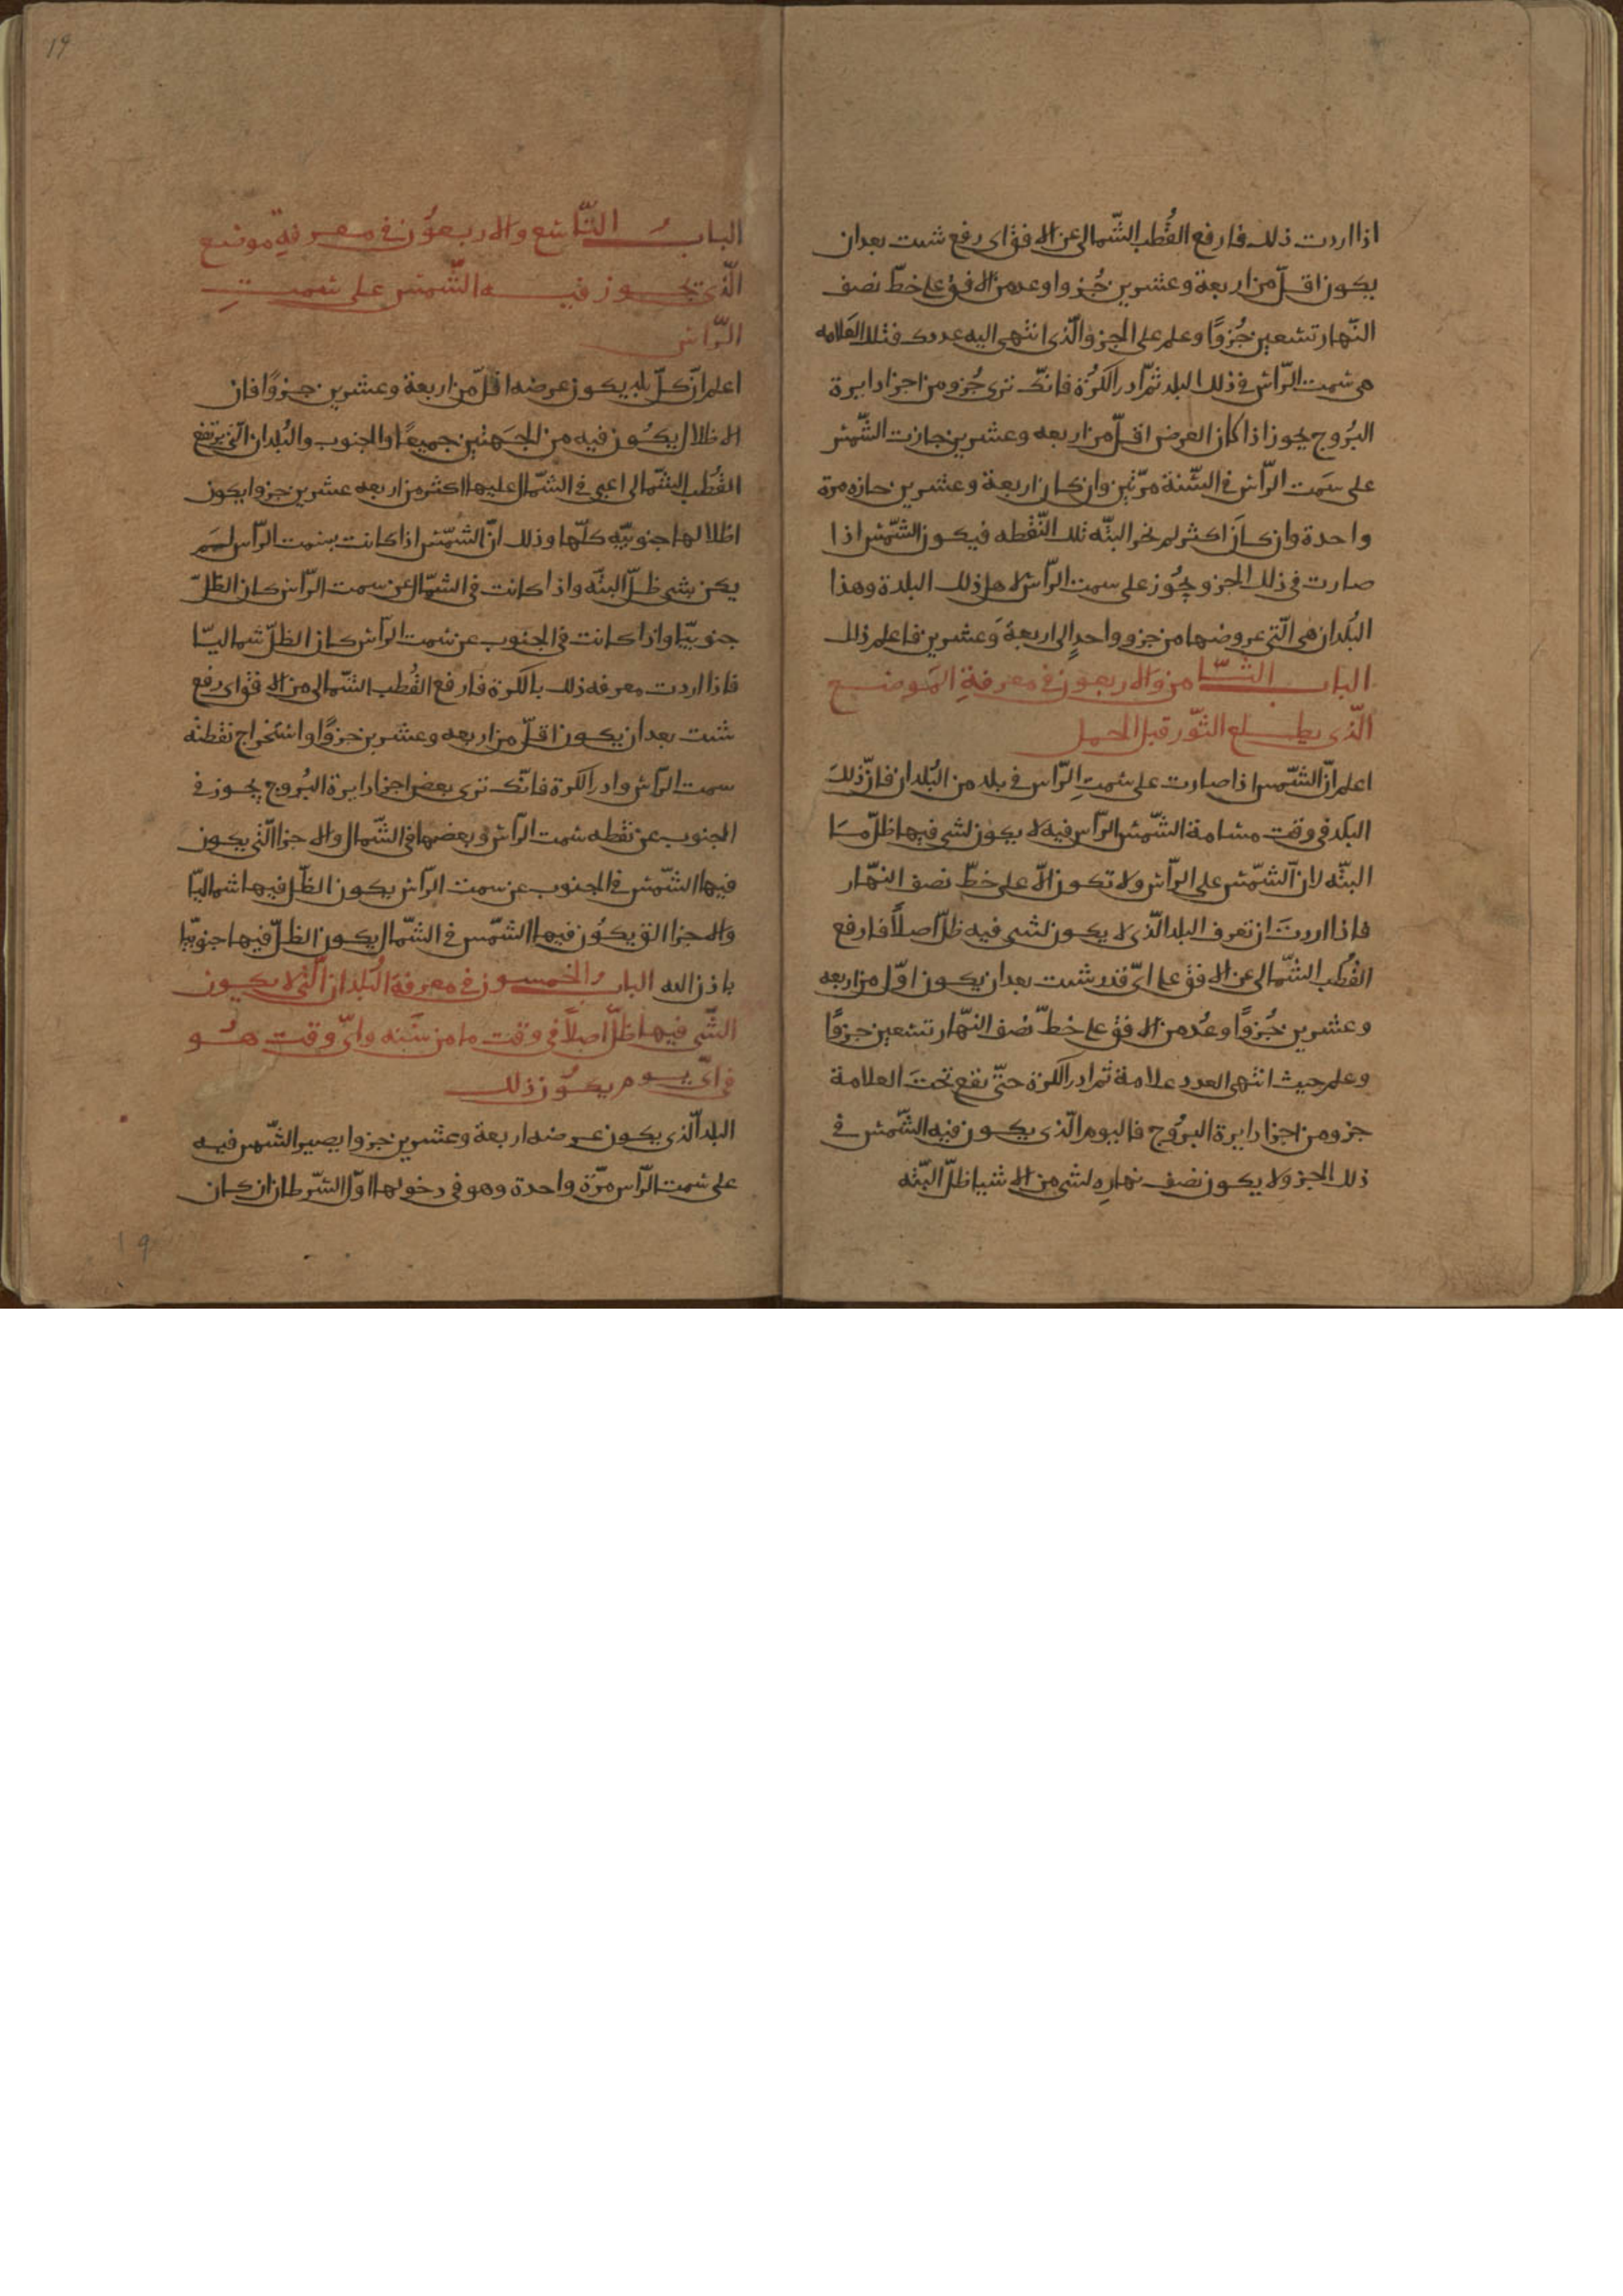 اذا اردت ذلك فارفع القُطب الشّمالى عن الافق اى رفع شئت بعد ان
يكون اقلّ من اربعة وعشرين جُزوا وعد من الافق على خطّ نصف
النّهار تسعين جُزوًا وعلم على الجزو الّذى انتهى اليه عددك فتلك العَلامه
هى سمت الرّاس فى ذلك البلد ثمّ ادر الكُرَة فانّك ترى جُزو من اجزا دايرة
البُروج يجوز اذا كان العرض اقلّ من اربعه وعشرين جازت الشّمس
على سَمت الرّاس فى السّنة مرّتين وان كان اربعة وعشرين جازه مرة
واحدة وان كانَ اكثر لم تجز البتّه تلك النّقطه فيكون الشّمس اذا
صارت فى ذلك الجزو يجُوز على سمت الرّاس لاهل ذلك البلدة وهذا
البُلدان هى الّتى عروضها من جزو واحدٍ الى اربعة وَعشرين فاعلم ذلك
الباب الثّامن والاربعون فى معرفةِ المَوضع
الّذى يطلع الثّور قبل الحمل
اعلم انّ الشّمس اذا صارت على سَمتِ الرّاس فى بلد من البُلدان فانّ ذلكَ
البلد فى وقت مسامة الشّمس الرّاس فيه لا يكون لشى فيها ظلّ مَا
البتّه لانّ الشّمس على الرّاس ولا تكون الّا على خطّ نصف النّهار
فاذا اردتَ ان تعرف البلد الّذى لا يكون لشى فيه ظلّ اصلًا فارفع
القُطب الشّمالى عن الافق على اىّ قدر شئت بعد ان يكون اوّل من اربعه
وعشرين جُزوًا وعُد من الافق على خطّ نصف النّهار تسعين جزوًا
وعلم حيث انتهى العدد علامة ثم ادر الكرة حتّى يقع تحتَ العلامة
جزو من اجزا دايرة البرُوج فاليوم الّذى يكون فيه الشّمس فى
ذلك الجزو لا يكون نصف نهارِه لشى من الاشيا ظلّ البتّه
البابُ التّاسع والاربعوُن فى معرفةِ موضع
الّذى تجوز فيه الشّمس على سمتِ
الرّاس
اعلم انّ كلّ بلدٍ يكون عرضه اقلّ من اربعة وعشرين جزوًا فان
الاظلال يكُون فيه من الجَهتين جميعًا والجنوب والبُلدان الّتى يرتفع
القُطب الشّمالى اعنى فى الشّمال عليها اكثر من اربعه عشرين جزوا يكون
اظلالها جنوبيّه كلّها وذلك انّ الشّمس اذا كانت بسمت الرّاس لم
يكن بشى ظلّ البتّه واذا كانت فى الشّمال عن سمت الرّاس كان الظلّ
جنوبيّا واذا كانت فى الجنوب عن سَمت الرّاس كان الظلّ شماليّا
فاذا اردت معرفه ذلك بالكرة فارفع القُطب الشّمالى من الافق اى رفع
شئت بعد ان يكون اقلّ من اربعه وعشرين جزوًا واستخراج نقطه
سمت الرّاس وادر الكرة فانّك ترى بعض اجزا دايرة البُروج يجوز فى
الجنوب عن نقطه سمت الرّاس وبعضها فى الشّمال والاجزا الّتى يكون
فيها الشّمس فى الجنوب عن سمت الرّاس يكون الظّل فيها شماليّا
والاجزا التى يكُون فيها الشّمس فى الشّمال يكون الظلّ فيها جنوبيّا
باذن الله البابُ الخمسون فى معرفة البُلدان الّتى لا يكون
الشّى فيها ظلّ اصلًا فى وقت ما من سَنه واىّ وقت هُو
فى اىّ يوم يكوُن ذلك
البلد الّذى يكون عرضه اربعة وعشرين جزوا يصير الشّمس فيه
على سمت الرّاس مرّة واحدة وهو فى دخولها اوّل السّرطان ان كان
19
19